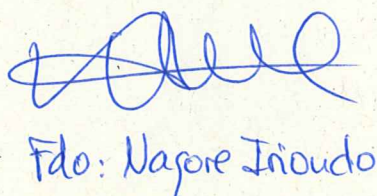 Fdo: Nagore Iriondo